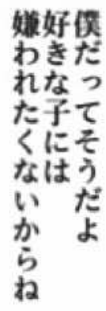 僕だってそうだよ
好きな子には
嫌われたくないからね